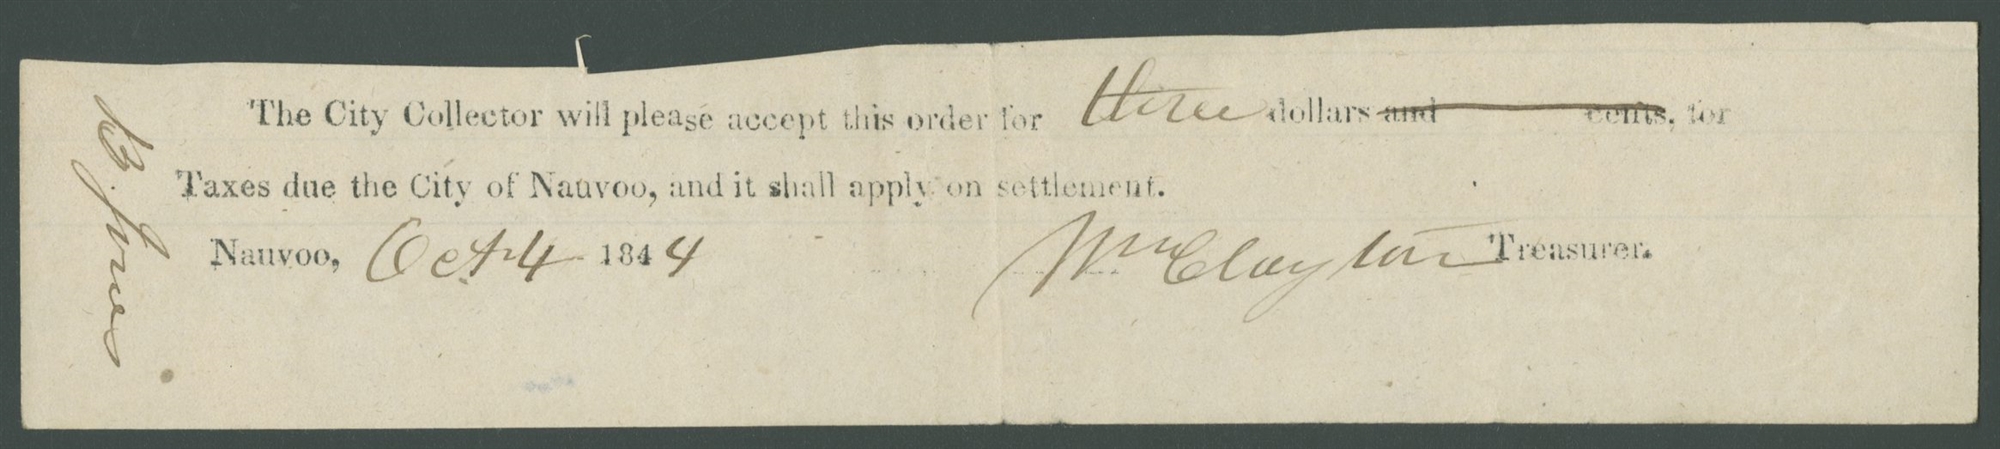 The City Collector will please accept this order for three dollars and cents, for
Taxes due the City of Nauvoo, and it shall apply on settlement.
Nauvoo, Oct 4 1844 Wm Clayton Treasurer.
B Jones